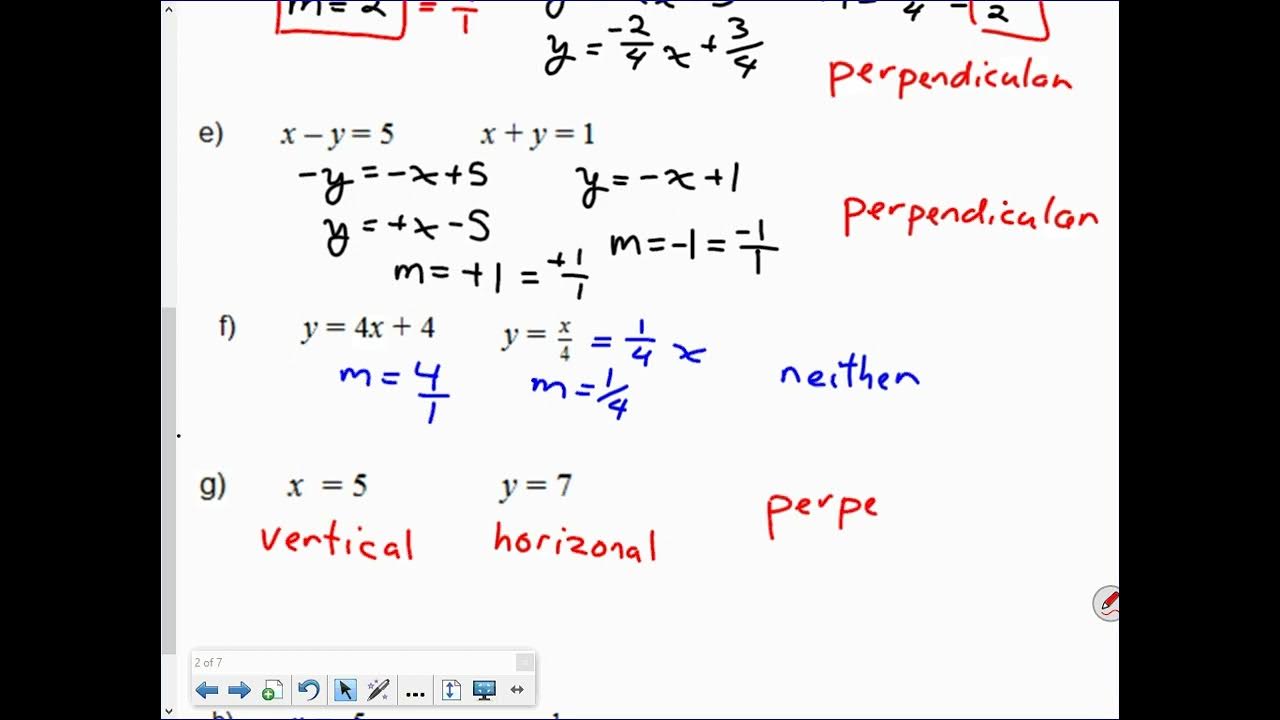 m = 2 = 1
y = -2/4 x + 3/4
4 - 2
perpendicular
e) x – y = 5 x + y = 1
-y = -x + 5 y = -x + 1
y = +x - 5 perpendicular
m = +1 = +1/1 m = -1 = -1/1
f) y = 4x + 4 y = x/4 = 1/4 x
m = 4/1 m = 1/4 neither
g) x = 5 y = 7
vertical horizonal perpe
2 of 7